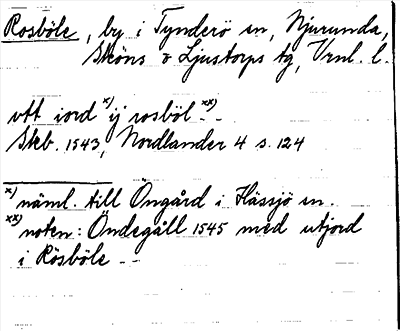 Rosböle, by i Tynderö sn, Njurunda,
Sköns o Ljustorps tg, Vrnl. l.
vtt iord x) ij rosböl - xx) -
Skb. 1543, Nordlander 4 s. 124
x) näml. till Öngård i Hässjö sn.
xx) noten: Öndegåll 1545 med utjord
i Rösböle - -